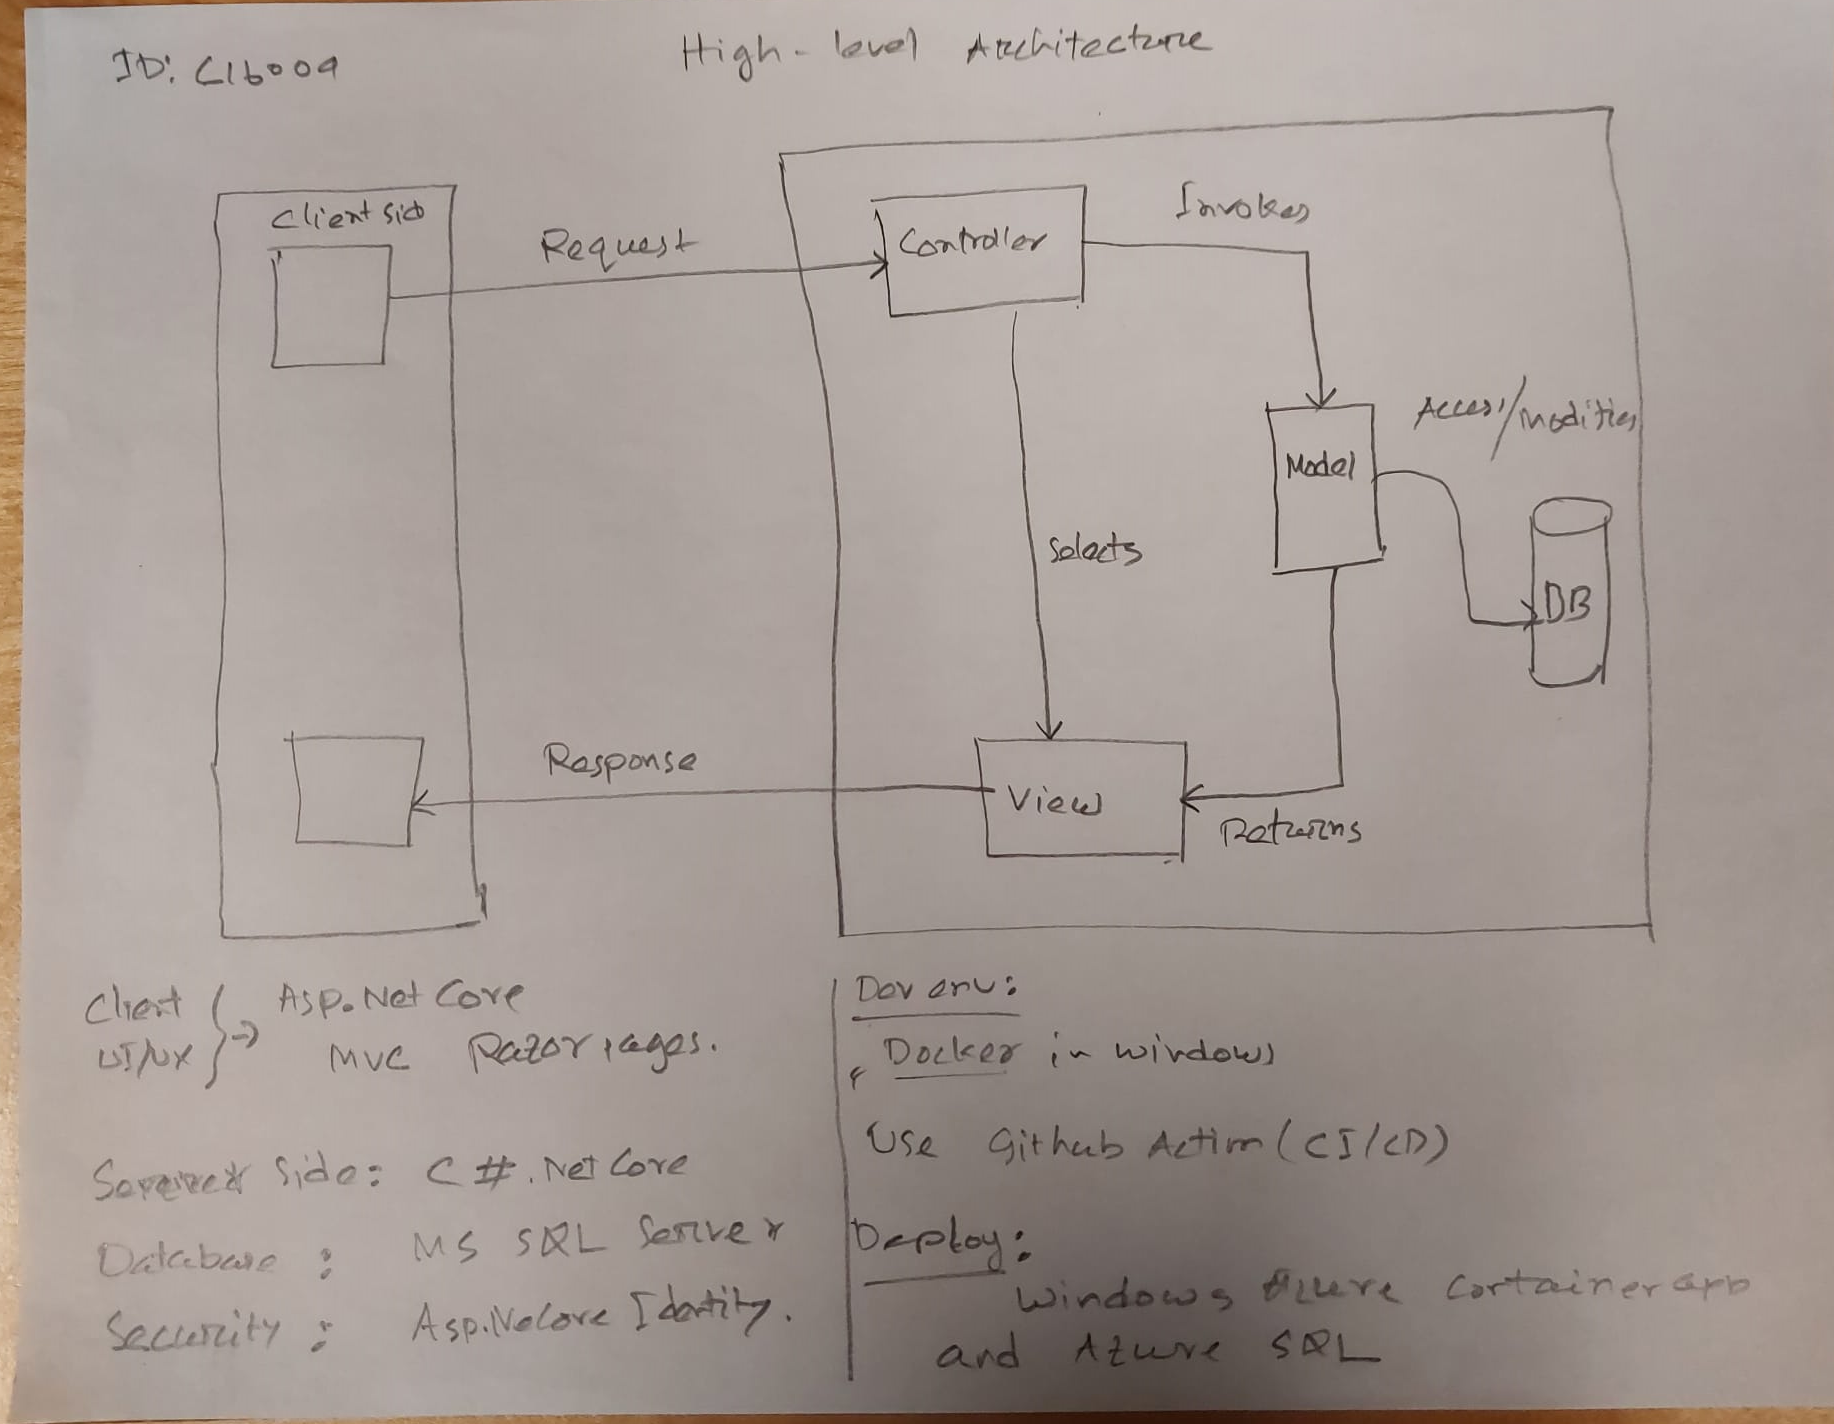 ID: C16009
High-level Architecture
Client sid
Request
Controller
Invokes
Model
Access/modifies
DB
Selects
Response
View
Returns
Client
UI/UX
Asp.Net Core
MVC Razor pages.
Server Side: C#.Net Core
Database : MS SQL Server
Security : Asp.NeCore Identity.
Dev env:
Docker in windows
Use Github Action (CI/CD)
Deploy:
Windows Azure Container app
and Azure SQL